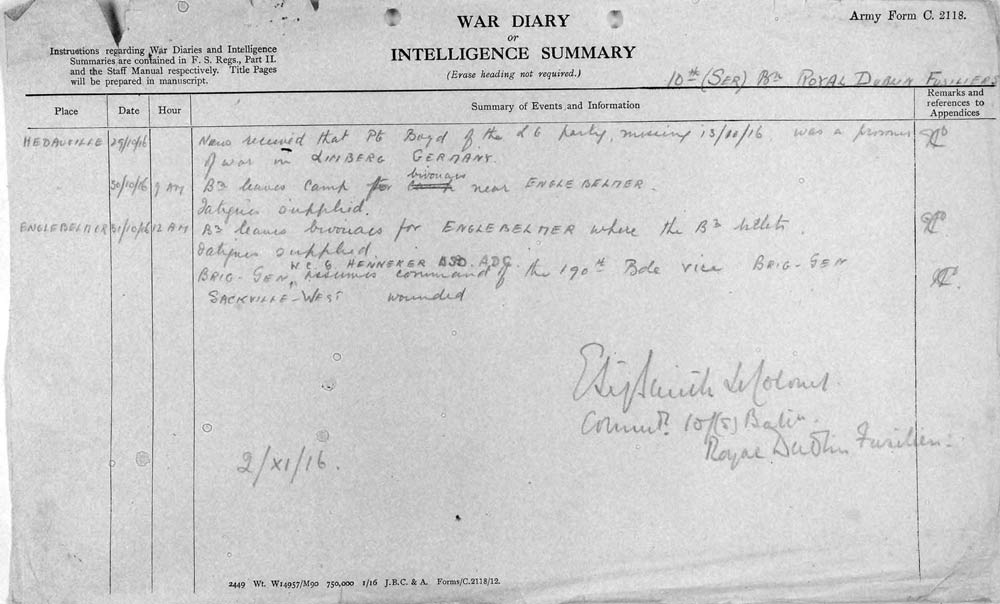 WAR DIARY
or
INTELLIGENCE SUMMARY
(Erase heading not required.)
Army Form C. 2118.
Instructions regarding War Diaries and Intelligence
Summaries are contained in F. S. Regs., Part II.
and the Staff Manual respectively. Title Pages
will be prepared in manuscript.
10th (Ser) Bn ROYAL DUBLIN FUSILIERS
Place Date Hour Summary of Events and Information Remarks and references to Appendices
HEDAUVILLE 29/10/16 News received that Pte Boyd of the LG party, missing 13/10/16 was a prisoner
of war in LIMBERG GERMANY.
30/10/16 9 AM Bn leaves camp for bivouacs near ENGLEBELMER.
Fatigues supplied.
ENGLEBELMER 31/10/16 12 AM Bn leaves bivouacs for ENGLEBELMER where the Bn billets.
Fatigues supplied.
BRIG-GEN W.C.G HENNEKER DSO. ADC. assumes command of the 190th Bde vice BRIG-GEN
SACKVILLE-WEST wounded
Smith Lt Colonel.
Commdg 10/(S) Battn.
Royal Dublin Fusiliers.
2/XI/16.
2449 Wt. W14957/M90 750,000 1/16 J.B.C. & A. Forms/C.2118/12.